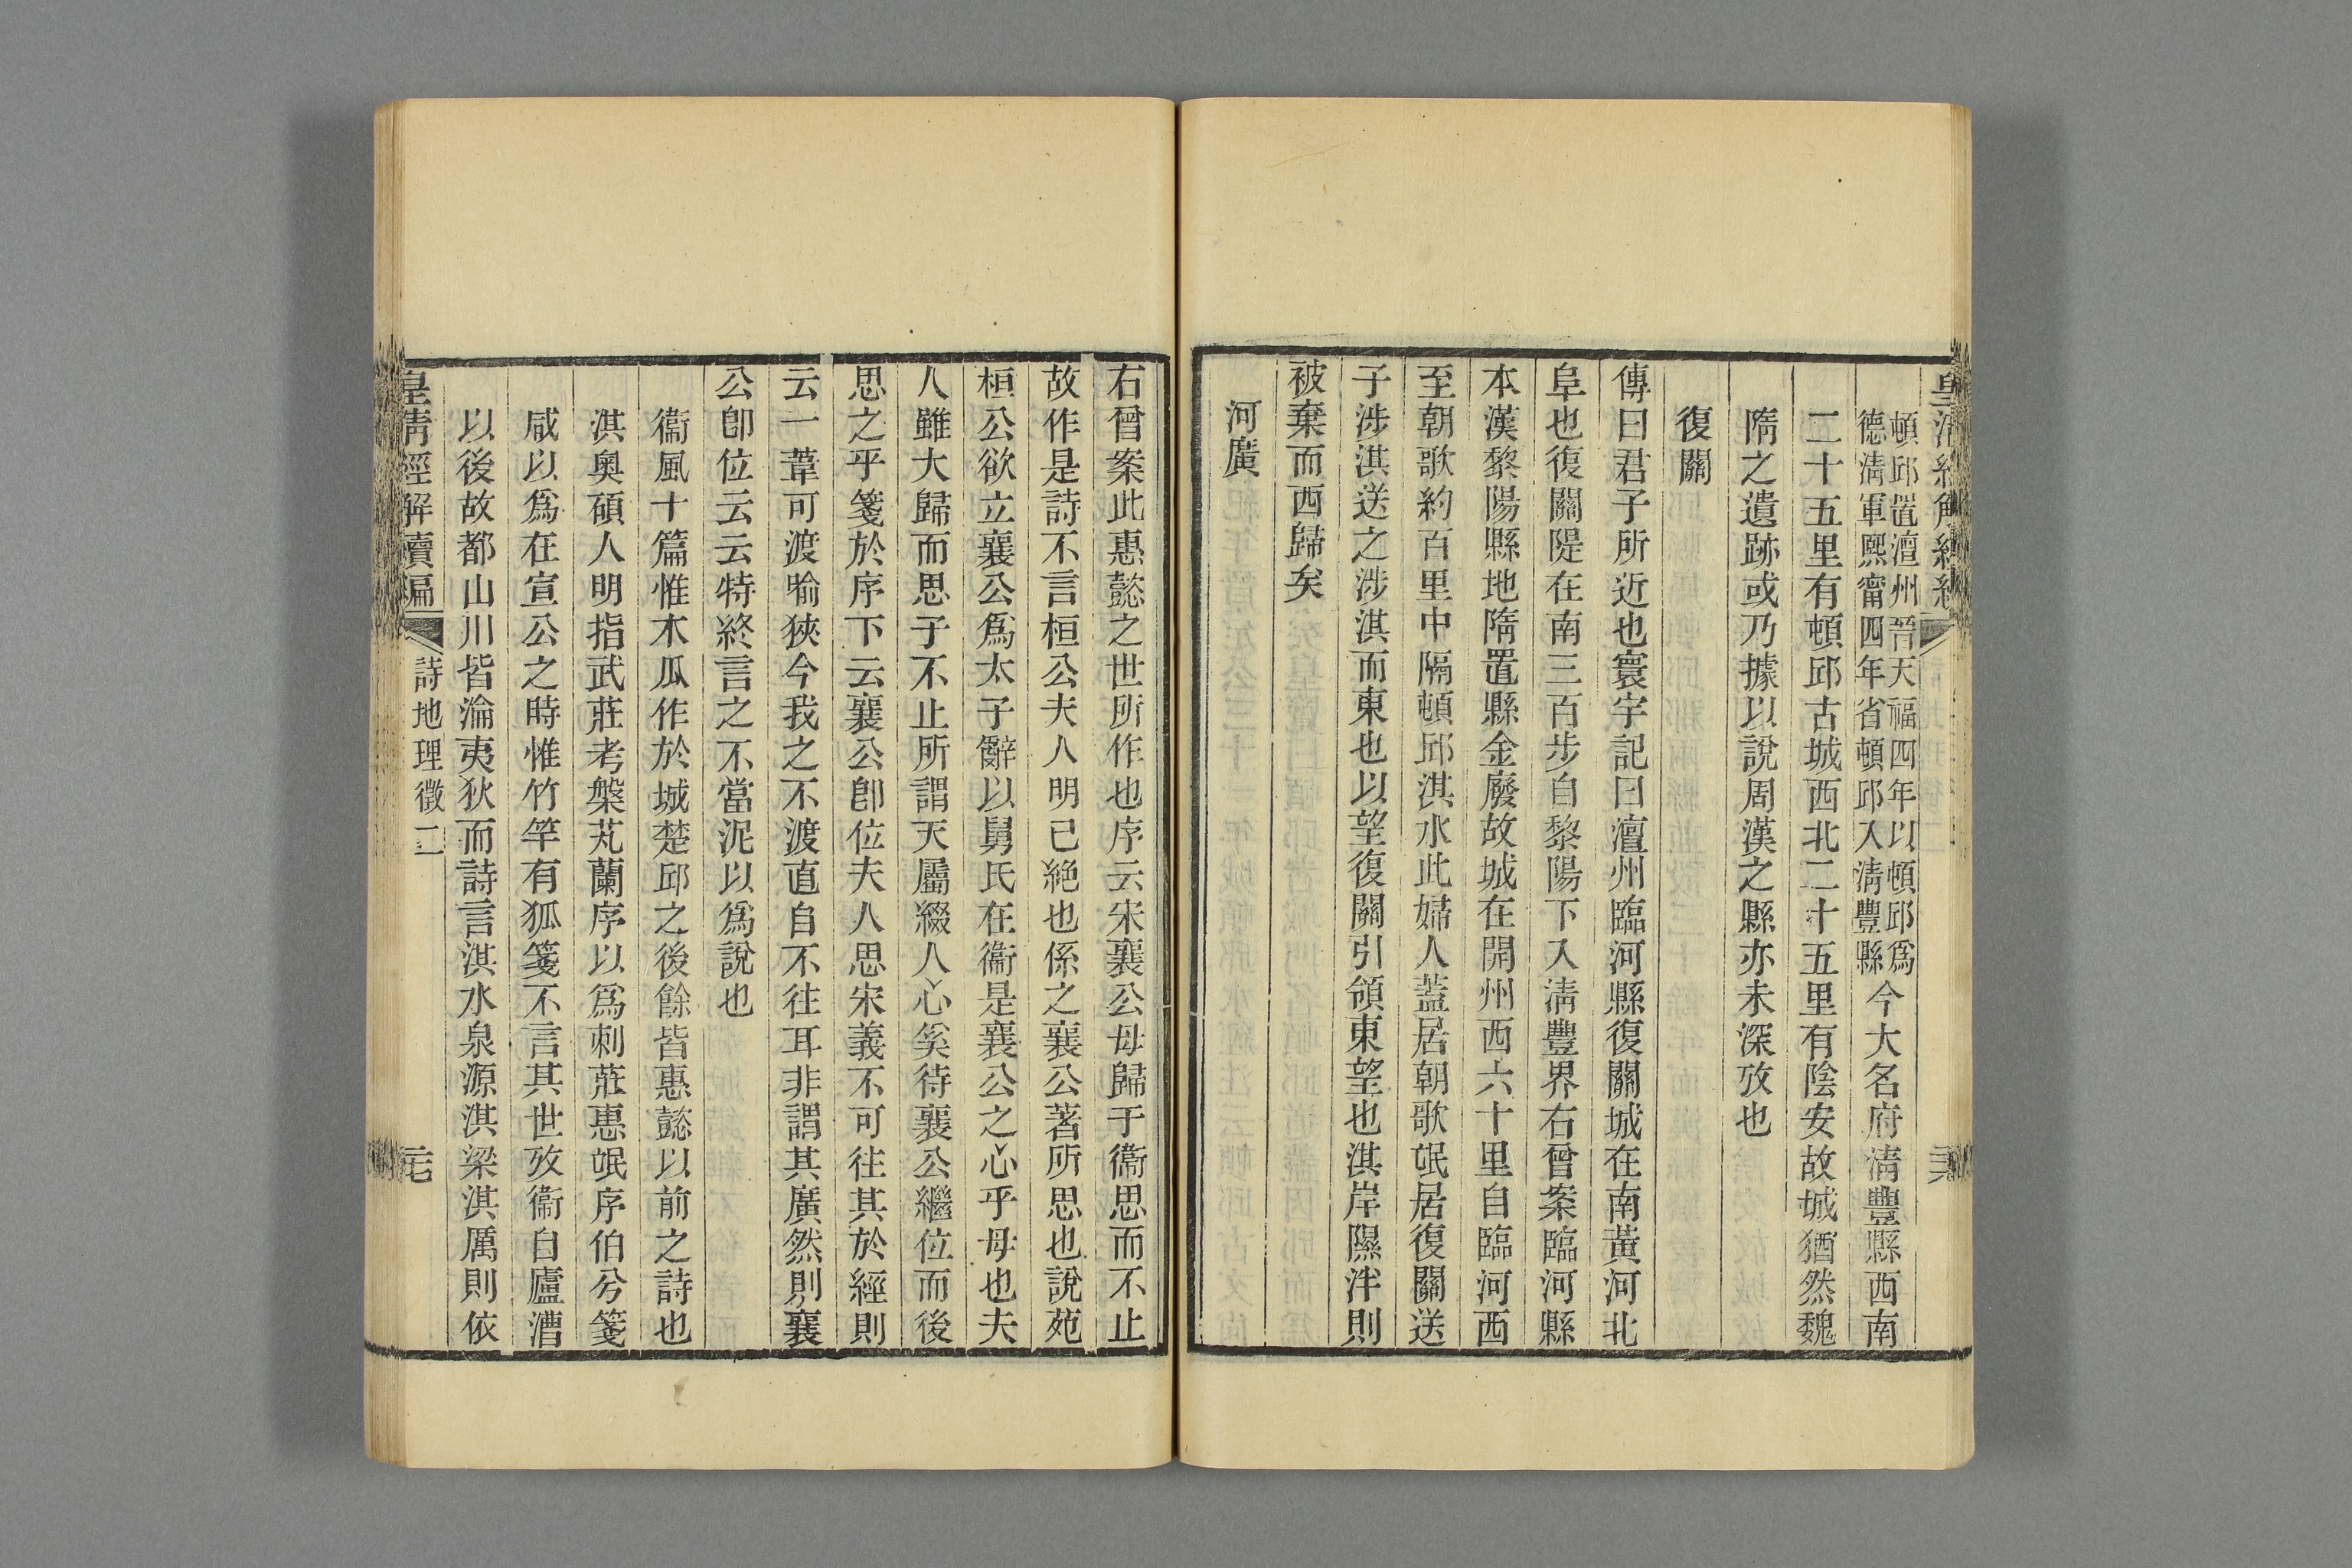 頓邱置澶州晉天福四年以頓邱爲
德淸軍熙甯四年省頓邱入淸豐縣今大名府淸豐縣西南
二十五里有頓邱古城西北二十五里有陰安故城猶然魏
隋之遺跡或乃據以說周漢之縣亦未深攷也
復關
傳曰君子所近也寰宇記曰澶州臨河縣復關城在南黃河北
阜也復關隄在南三百步自黎陽下入淸豐界右曾案臨河縣
本漢黎陽縣地隋置縣金廢故城在開州西六十里自臨河西
至朝歌約百里中隔頓邱淇水此婦人蓋居朝歌氓居復關送
子涉淇送之涉淇而東也以望復關引領東望也淇岸隰泮則
被棄而西歸矣
河廣
右曾案此惠懿之世所作也序云宋襄公母歸于衞思而不止
故作是詩不言桓公夫人明已絕也係之襄公著所思也說苑
桓公欲立襄公爲太子辭以舅氏在衞是襄公之心乎母也夫
人雖大歸而思子不止所謂天屬綴人心奚待襄公繼位而後
思之乎箋於序下云襄公卽位夫人思宋義不可往其於經則
云一葦可渡喻狹今我之不渡直自不往耳非謂其廣然則襄
公卽位云云特終言之不當泥以爲說也
衞風十篇惟木瓜作於城楚邱之後餘皆惠懿以前之詩也
淇奧碩人明指武莊考槃芄蘭序以爲刺莊惠氓序伯兮箋
咸以爲在宣公之時惟竹竿有狐箋不言其世攷衞自廬漕
以後故都山川皆淪夷狄而詩言淇水泉源淇梁淇厲則依
皇淸經解續編 詩地理徵二 二七